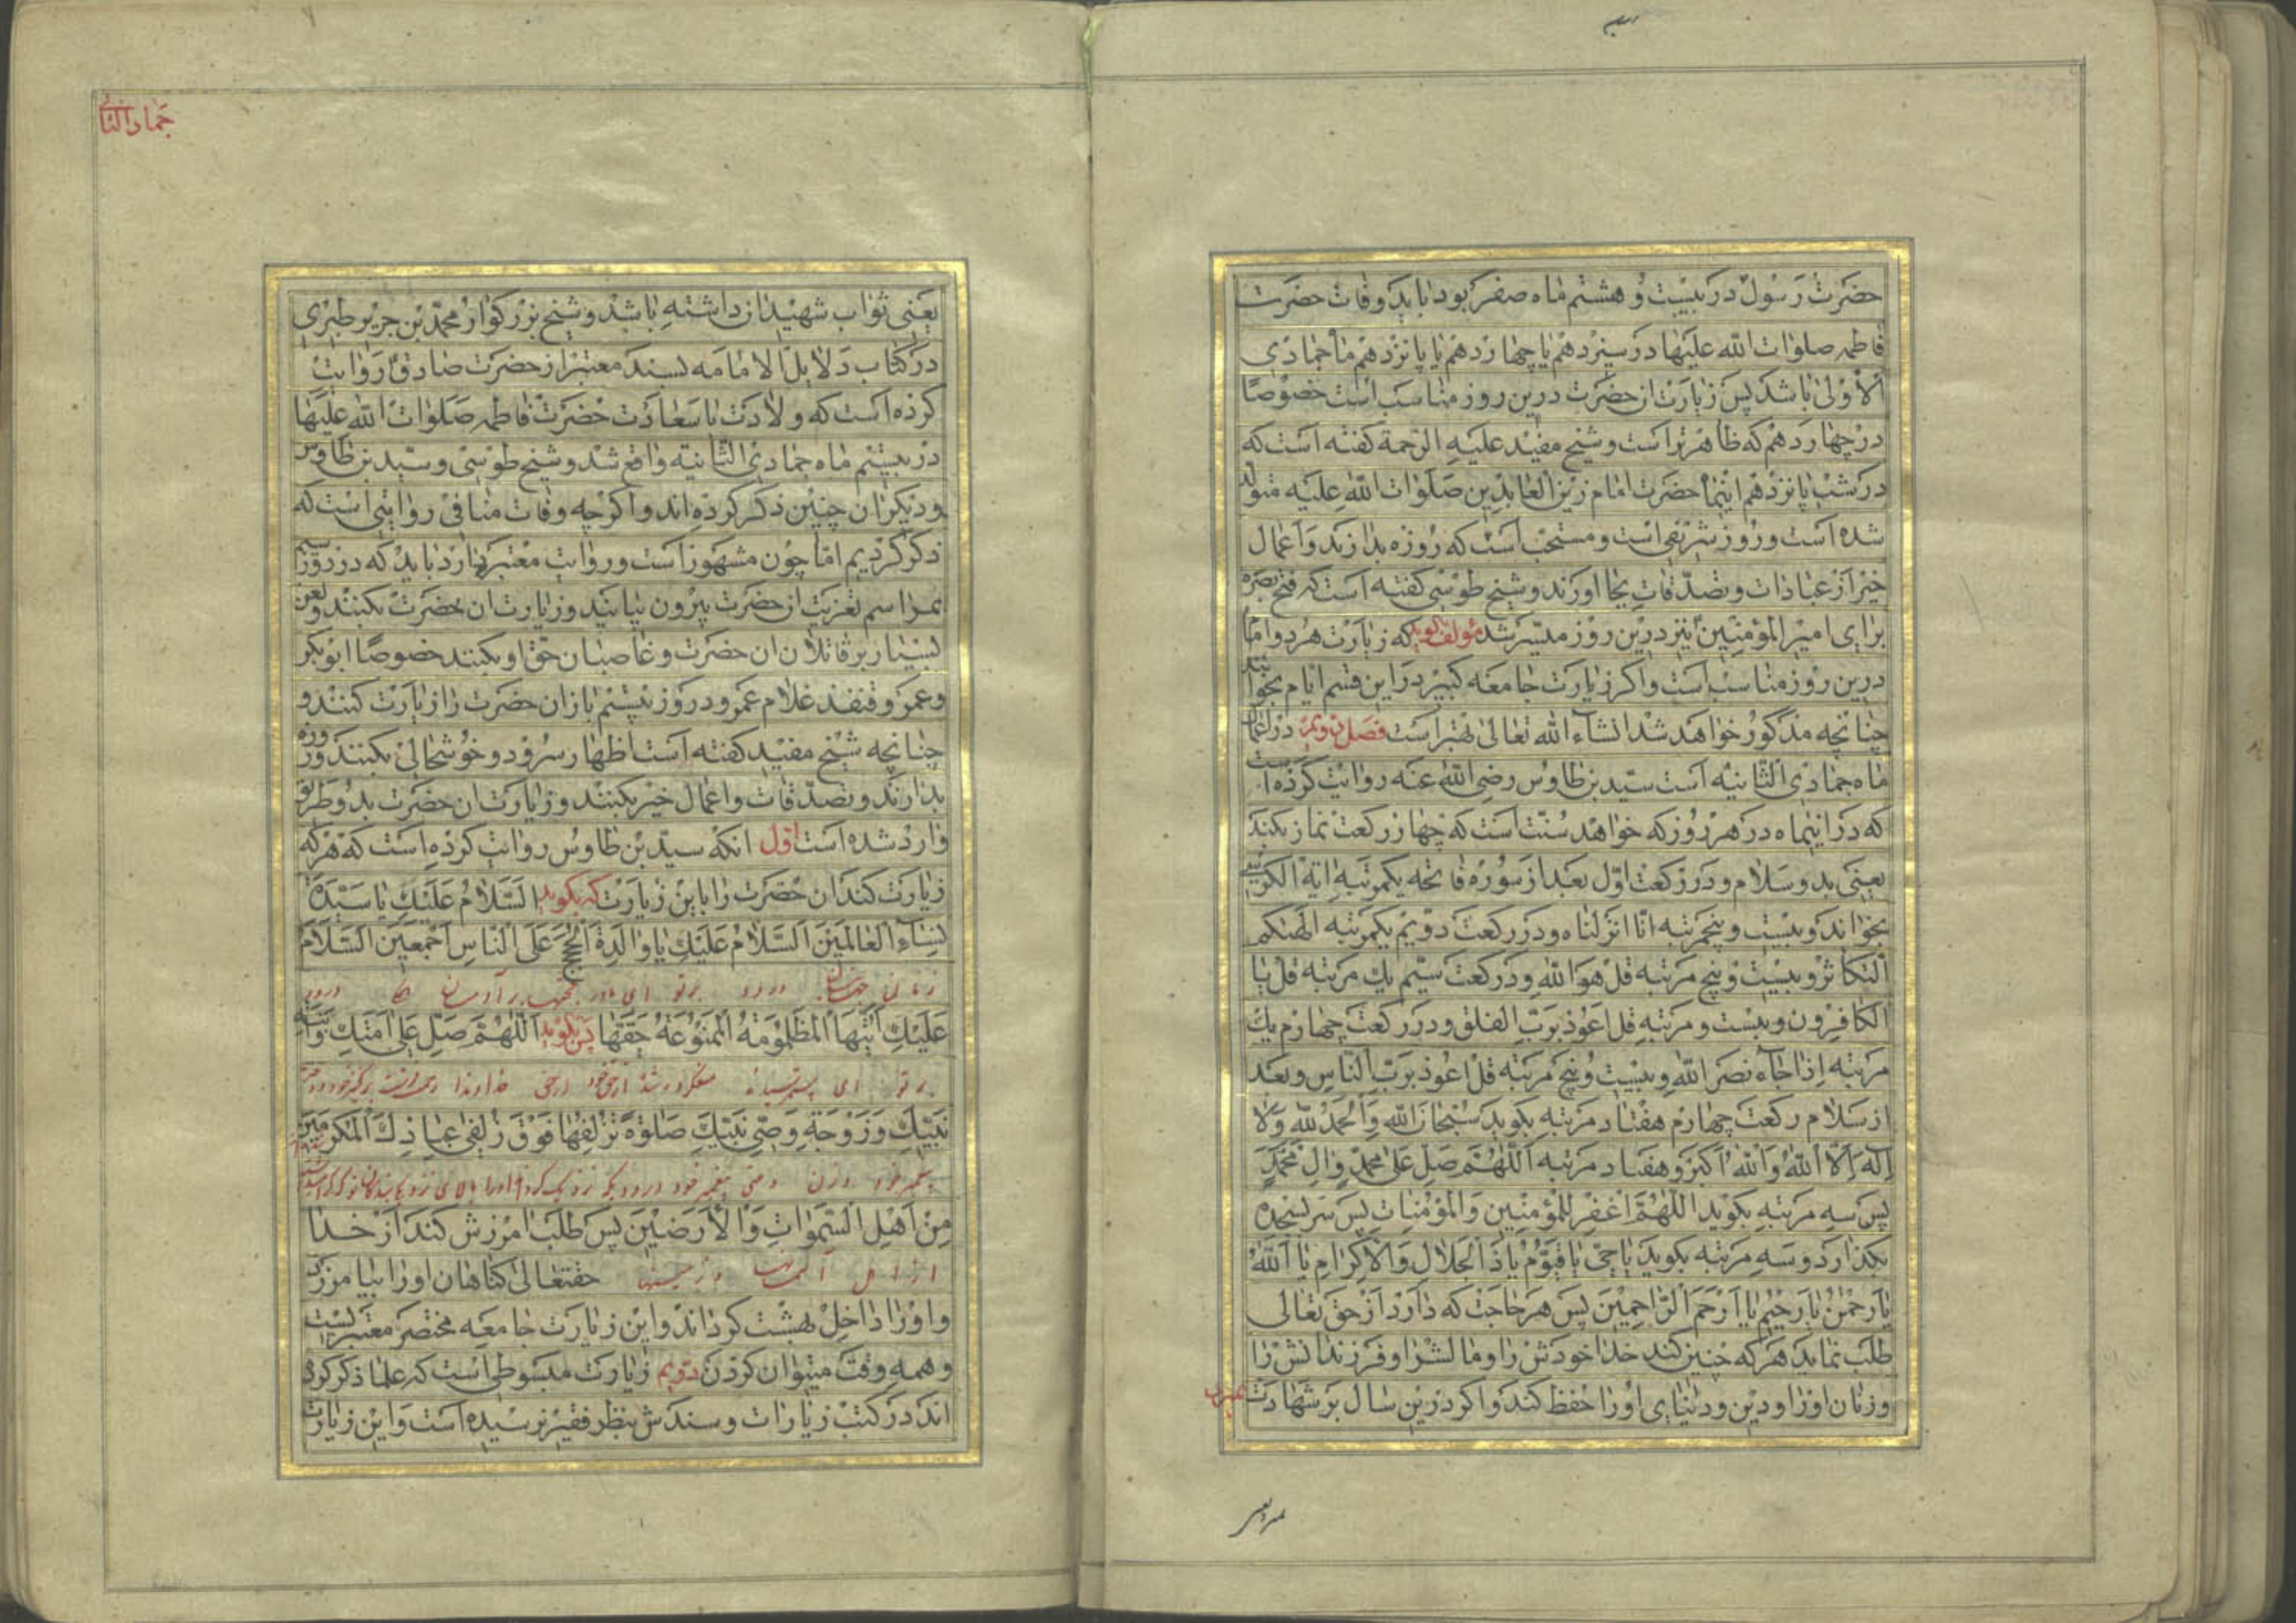 حضرت رسول در بیست و هشتم ماه صفر بود باید وفات حضرت
فاطمه صلوات الله علیها در سیزدهم یا چهاردهم یا پانزدهم ماه جمادی
الاولی باشد پس زیارت آن حضرت درین روز مناسب است خصوصا
در چهاردهم که ظاهرتر است و شیخ مفید علیه الرحمة گفته است که
در شب پانزدهم اینماه حضرت امام زین العابدین صلوات الله علیه متولد
شده است و روز شریفی است و مستحب است که روزه بدارند و اعمال
خیر از عبادات و تصدقات بجا آورند و شیخ طوسی گفته است که فتح بصره
برای امیر المؤمنین نیز درین روز میسر شد مؤلف گوید که زیارت هر دو امام
درین روز مناسب است و اگر زیارت جامعه کبیر در این قسم ایام بخوانند
چنانچه مذکور خواهد شد انشاء الله تعالی بهتر است فصل دویم در اعمال
ماه جمادی الثانیه است سید بن طاوس رضی الله عنه روایت کرده است
که در اینماه در هر روز که خواهد سنت است که چهار رکعت نماز بکند
یعنی بدو سلام و در رکعت اول بعد از سوره فاتحه یکمرتبه آیة الکرسی
بخواند و بیست و پنجمرتبه انا انزلناه و در رکعت دویم یکمرتبه الهٰیکم
التکاثر و بیست و پنج مرتبه قل هو الله و در رکعت سیم یک مرتبه قل یا
الکافرون و بیست و مرتبه قل اعوذ برب الفلق و در رکعت چهارم یک
مرتبه اذا جاء نصر الله و بیست و پنج مرتبه قل اعوذ برب الناس و بعد
از سلام رکعت چهارم هفتاد مرتبه بگوید سبحان الله و الحمد لله و لا
اله الا الله و الله اکبر و هفتاد مرتبه اللهم صل علی محمد و ال محمد
پس سه مرتبه بگوید اللهم اغفر للمؤمنین و المؤمنات پس سر بسجده
بگذارد و سه مرتبه بگوید یا حی یا قیوم یا ذا الجلال و الاکرام یا الله
یا رحمن یا رحیم یا ارحم الراحمین پس هر حاجت که دارد از حق تعالی
طلب نماید هر که چنین کند خدا خودش را و مالش را و فرزندانش را
و زنان او را و دین و دنیای او را حفظ کند و اگر درین سال بمیرد بر شهادت
جماد الثانی
یعنی ثواب شهیدان داشته باشد و شیخ بزرگوار محمد بن جریر طبری
در کتاب دلایل الامامه بسند معتبر از حضرت صادق روایت
کرده است که ولادت با سعادت حضرت فاطمه صلوات الله علیها
در بیستم ماه جمادی الثانیه واقع شد و شیخ طوسی و سید بن طاوس
و دیگران چنین ذکر کرده اند و اگرچه وفات منافی روایتی است که
ذکر کردیم اما چون مشهور است و روایت معتبر دارد باید که در روز سیم
مراسم تعزیت از حضرت بیرون بیایند و زیارت آن حضرت بکنند و لعن
بسیار بر قاتلان آن حضرت و غاصبان حق او بکنند خصوصا ابوبکر
و عمر و قنفذ غلام عمر و در روز بیستم باز آن حضرت را زیارت کنند و
چنانچه شیخ مفید گفته است اظهار سرور و خوشحالی بکنند و روزه
بدارند و تصدقات و اعمال خیر بکنند و زیارت آن حضرت بدو طریق
وارد شده است اول آنکه سید بن طاوس روایت کرده است که هر که
زیارت کند آن حضرت را باین زیارت که بگوید السلام علیک یا سیدة
نساء العالمین السلام علیک یا والدة الحجج علی الناس اجمعین السلام
زنان جهانیان درود بر تو ای مادر
علیک ایتها المظلومة الممنوعة حقها پس بگوید اللهم صل علی امتک و ابنة
بر تو ای خداوندا
نبیک و زوجة وصی نبیک صلوة تزلفها فوق زلفی عبادک المکرمین
من اهل السموات و الارضین پس طلب آمرزش کند از خدا
از اهل آسمانها و زمینها حقتعالی گناهان او را بیامرزد
و او را داخل بهشت گرداند و این زیارت جامعه مختصر معتبریست
و همه وقت میتوان کردن دویم زیارت مبسوطی است که علما ذکر کرده
اند در کتب زیارات و سندش بنظر فقیر نرسیده است و این زیارت